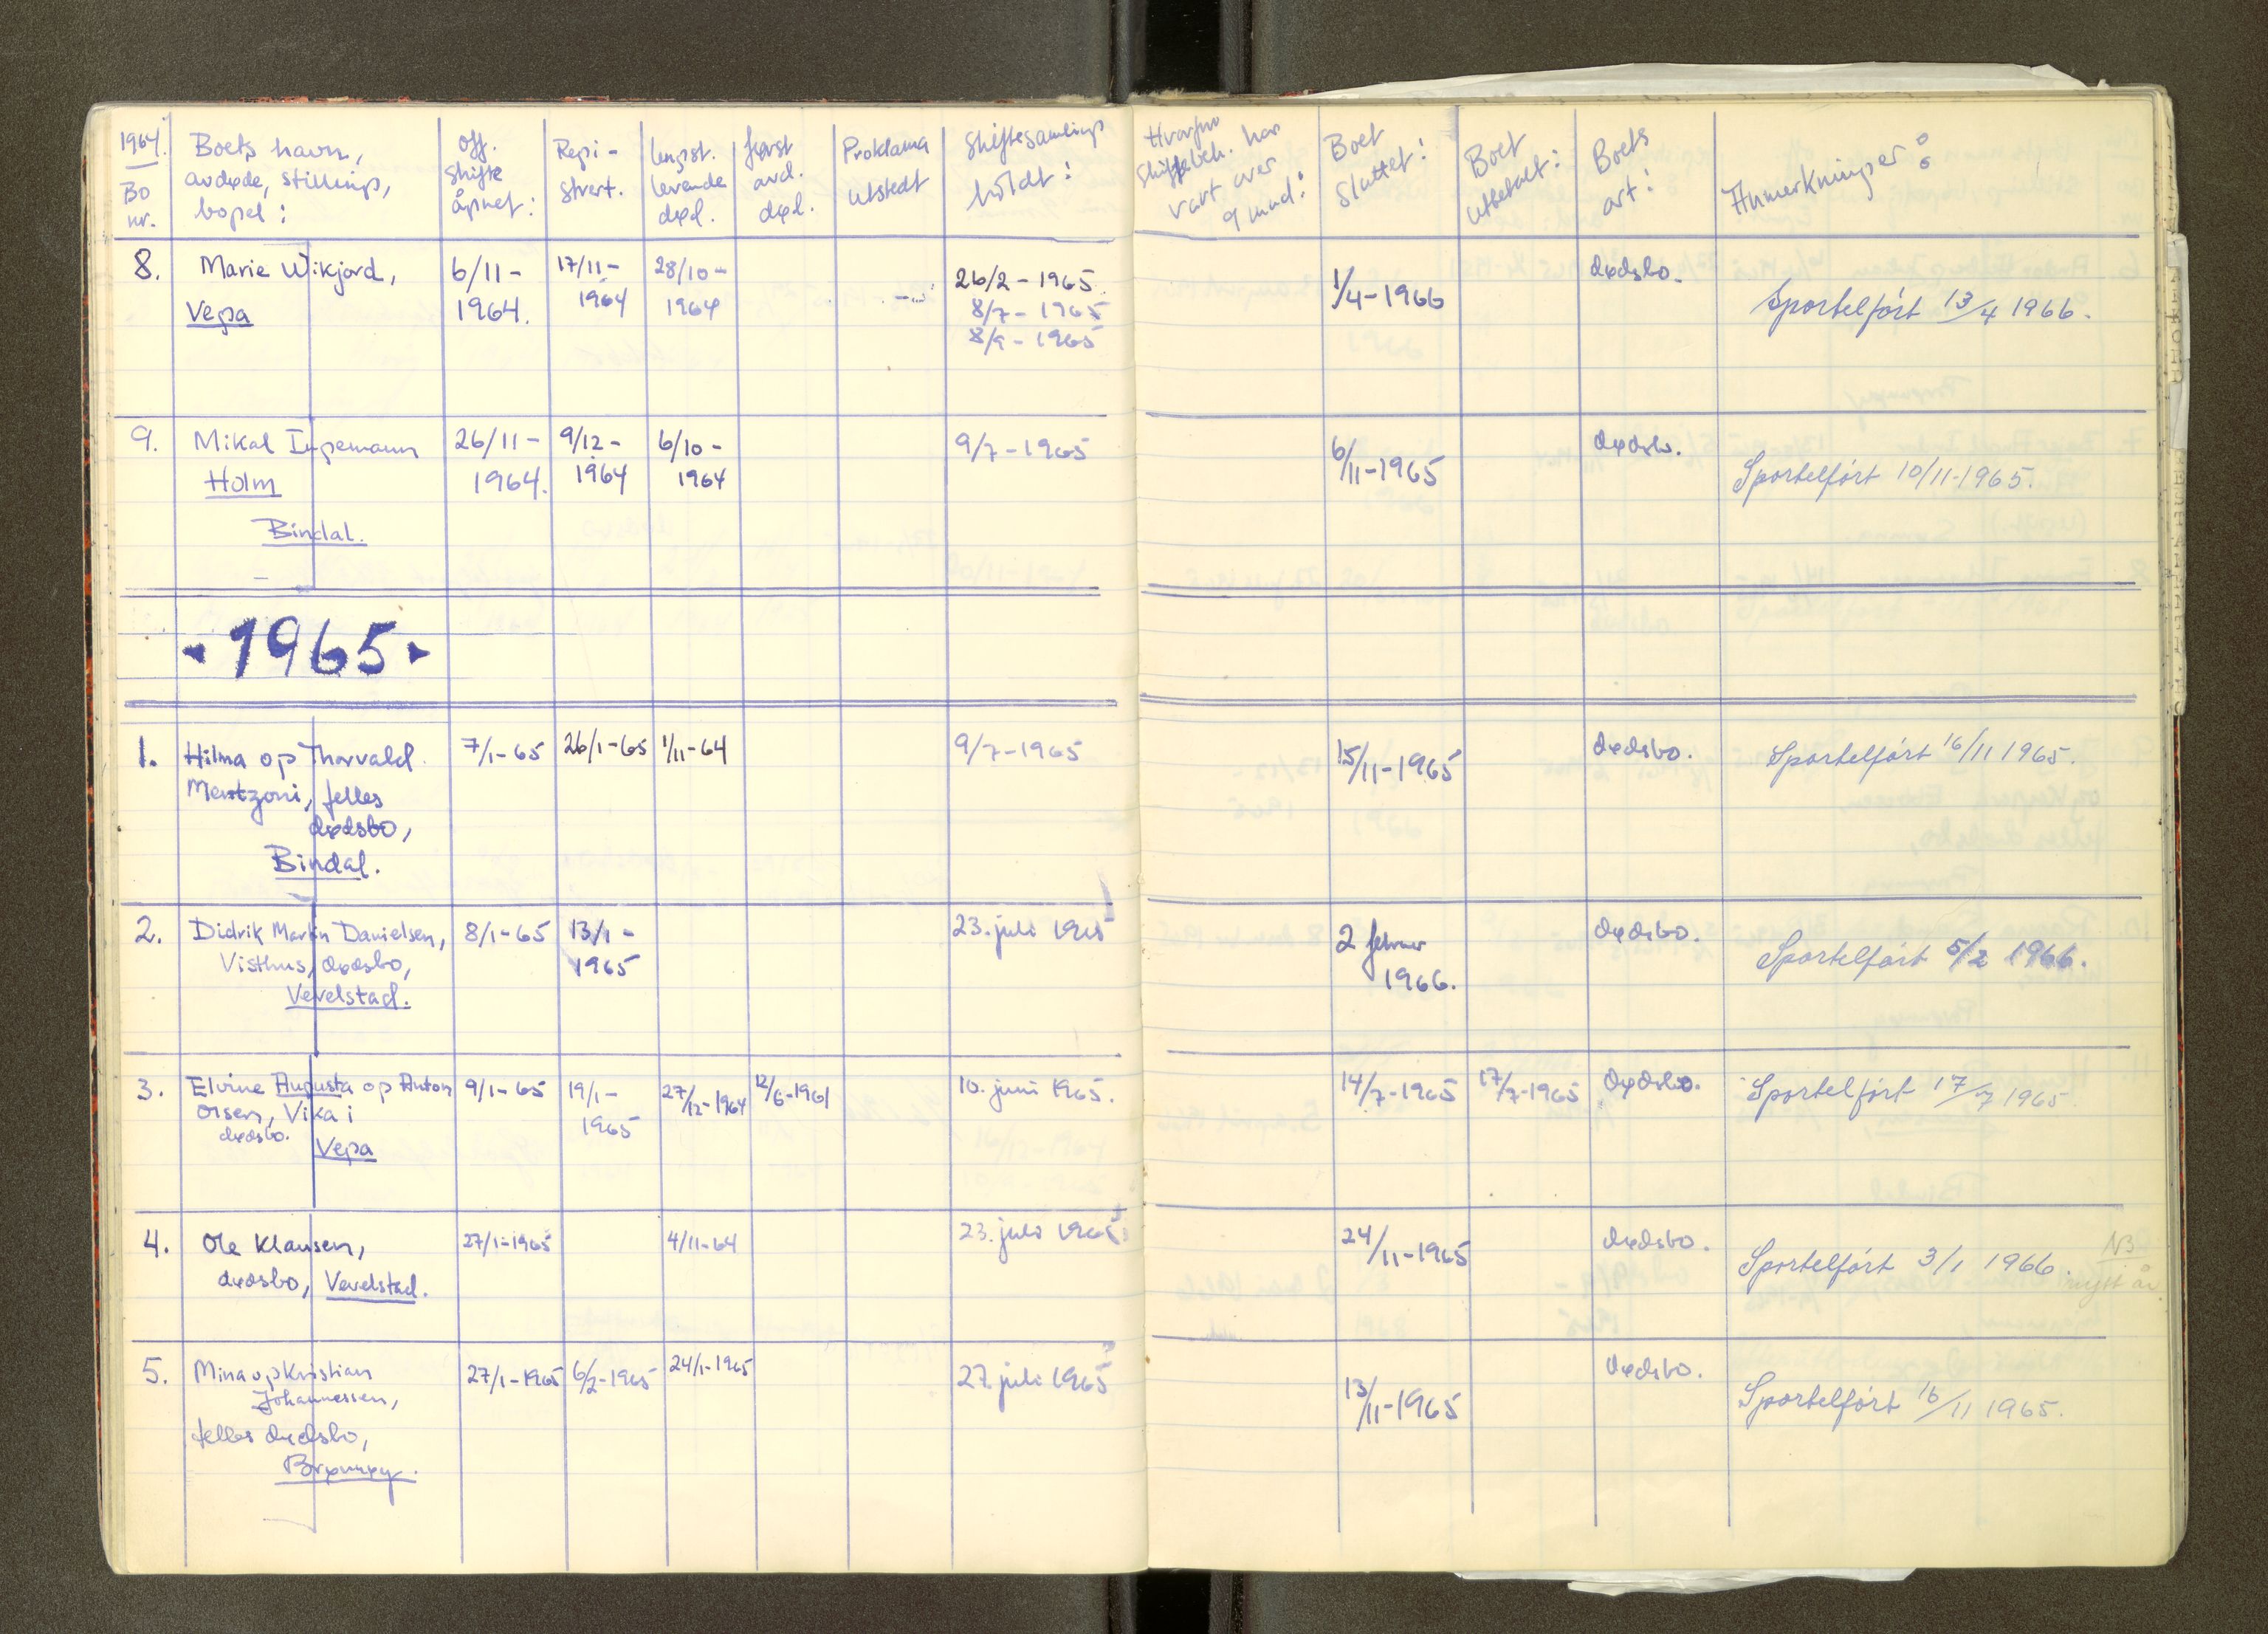 1964.
Bo nr.
Boets navn, avdøde, stilling, bopel:
Off. skifte åpnet:
Regi-strert.
lengst. levende død.
først avd. død.
Proklama utstedt
Skiftesamling holdt:
Hvorfor skiftebeh. har vart over 9 mnd:
Boet sluttet:
Boet utbetalt:
Boets art:
Anmerkninger:
8. Marie Wikjord, 6/11- 17/11- 28/10- 26/2-1965. 1/4-1966 dødsbo.
Vega 1964. 1964 1964 8/7-1965 Sportelført 13/4 1966.
8/9-1965
9. Mikal Ingemann 26/11- 9/12- 6/10- 9/7-1965 6/11-1965 dødsb.
Holm 1964. 1964 1964 Sportelført 10/11-1965.
Bindal.
1965
1. Hilma og Thorvald 7/1-65 26/1-65 1/11-64 9/7-1965 15/11-1965 dødsbo. Sportelført 16/11 1965.
Mentzoni, felles
dødsbo,
Bindal.
2. Didrik Martin Danielsen, 8/1-65 13/1- 23. juli 1965 2 februar dødsbo.
Visthus, dødsbo, 1965 1966. Sportelført 5/2 1966.
Vevelstad.
3. Elvine Augusta og Anton 9/1-65 19/1- 27/12-1964 12/6-1961 10. juni 1965. 14/7-1965 17/7-1965 dødsbo. Sportelført 17/7 1965
Olsen, Vika i 1965
dødsbo.
Vega
4. Ole Klausen, 27/1-1965 4/11-64 23. juli 1965 24/11-1965 dødsbo.
dødsbo, Vevelstad. Sportelført 3/1 1966. NB
nytt år
5. Mina og Kristian 27/1-1965 6/2-1965 24/1-1965 27. juli 1965 13/11-1965 dødsbo.
Johannessen, Sportelført 16/11 1965.
felles dødsbo,
Brønnøy.